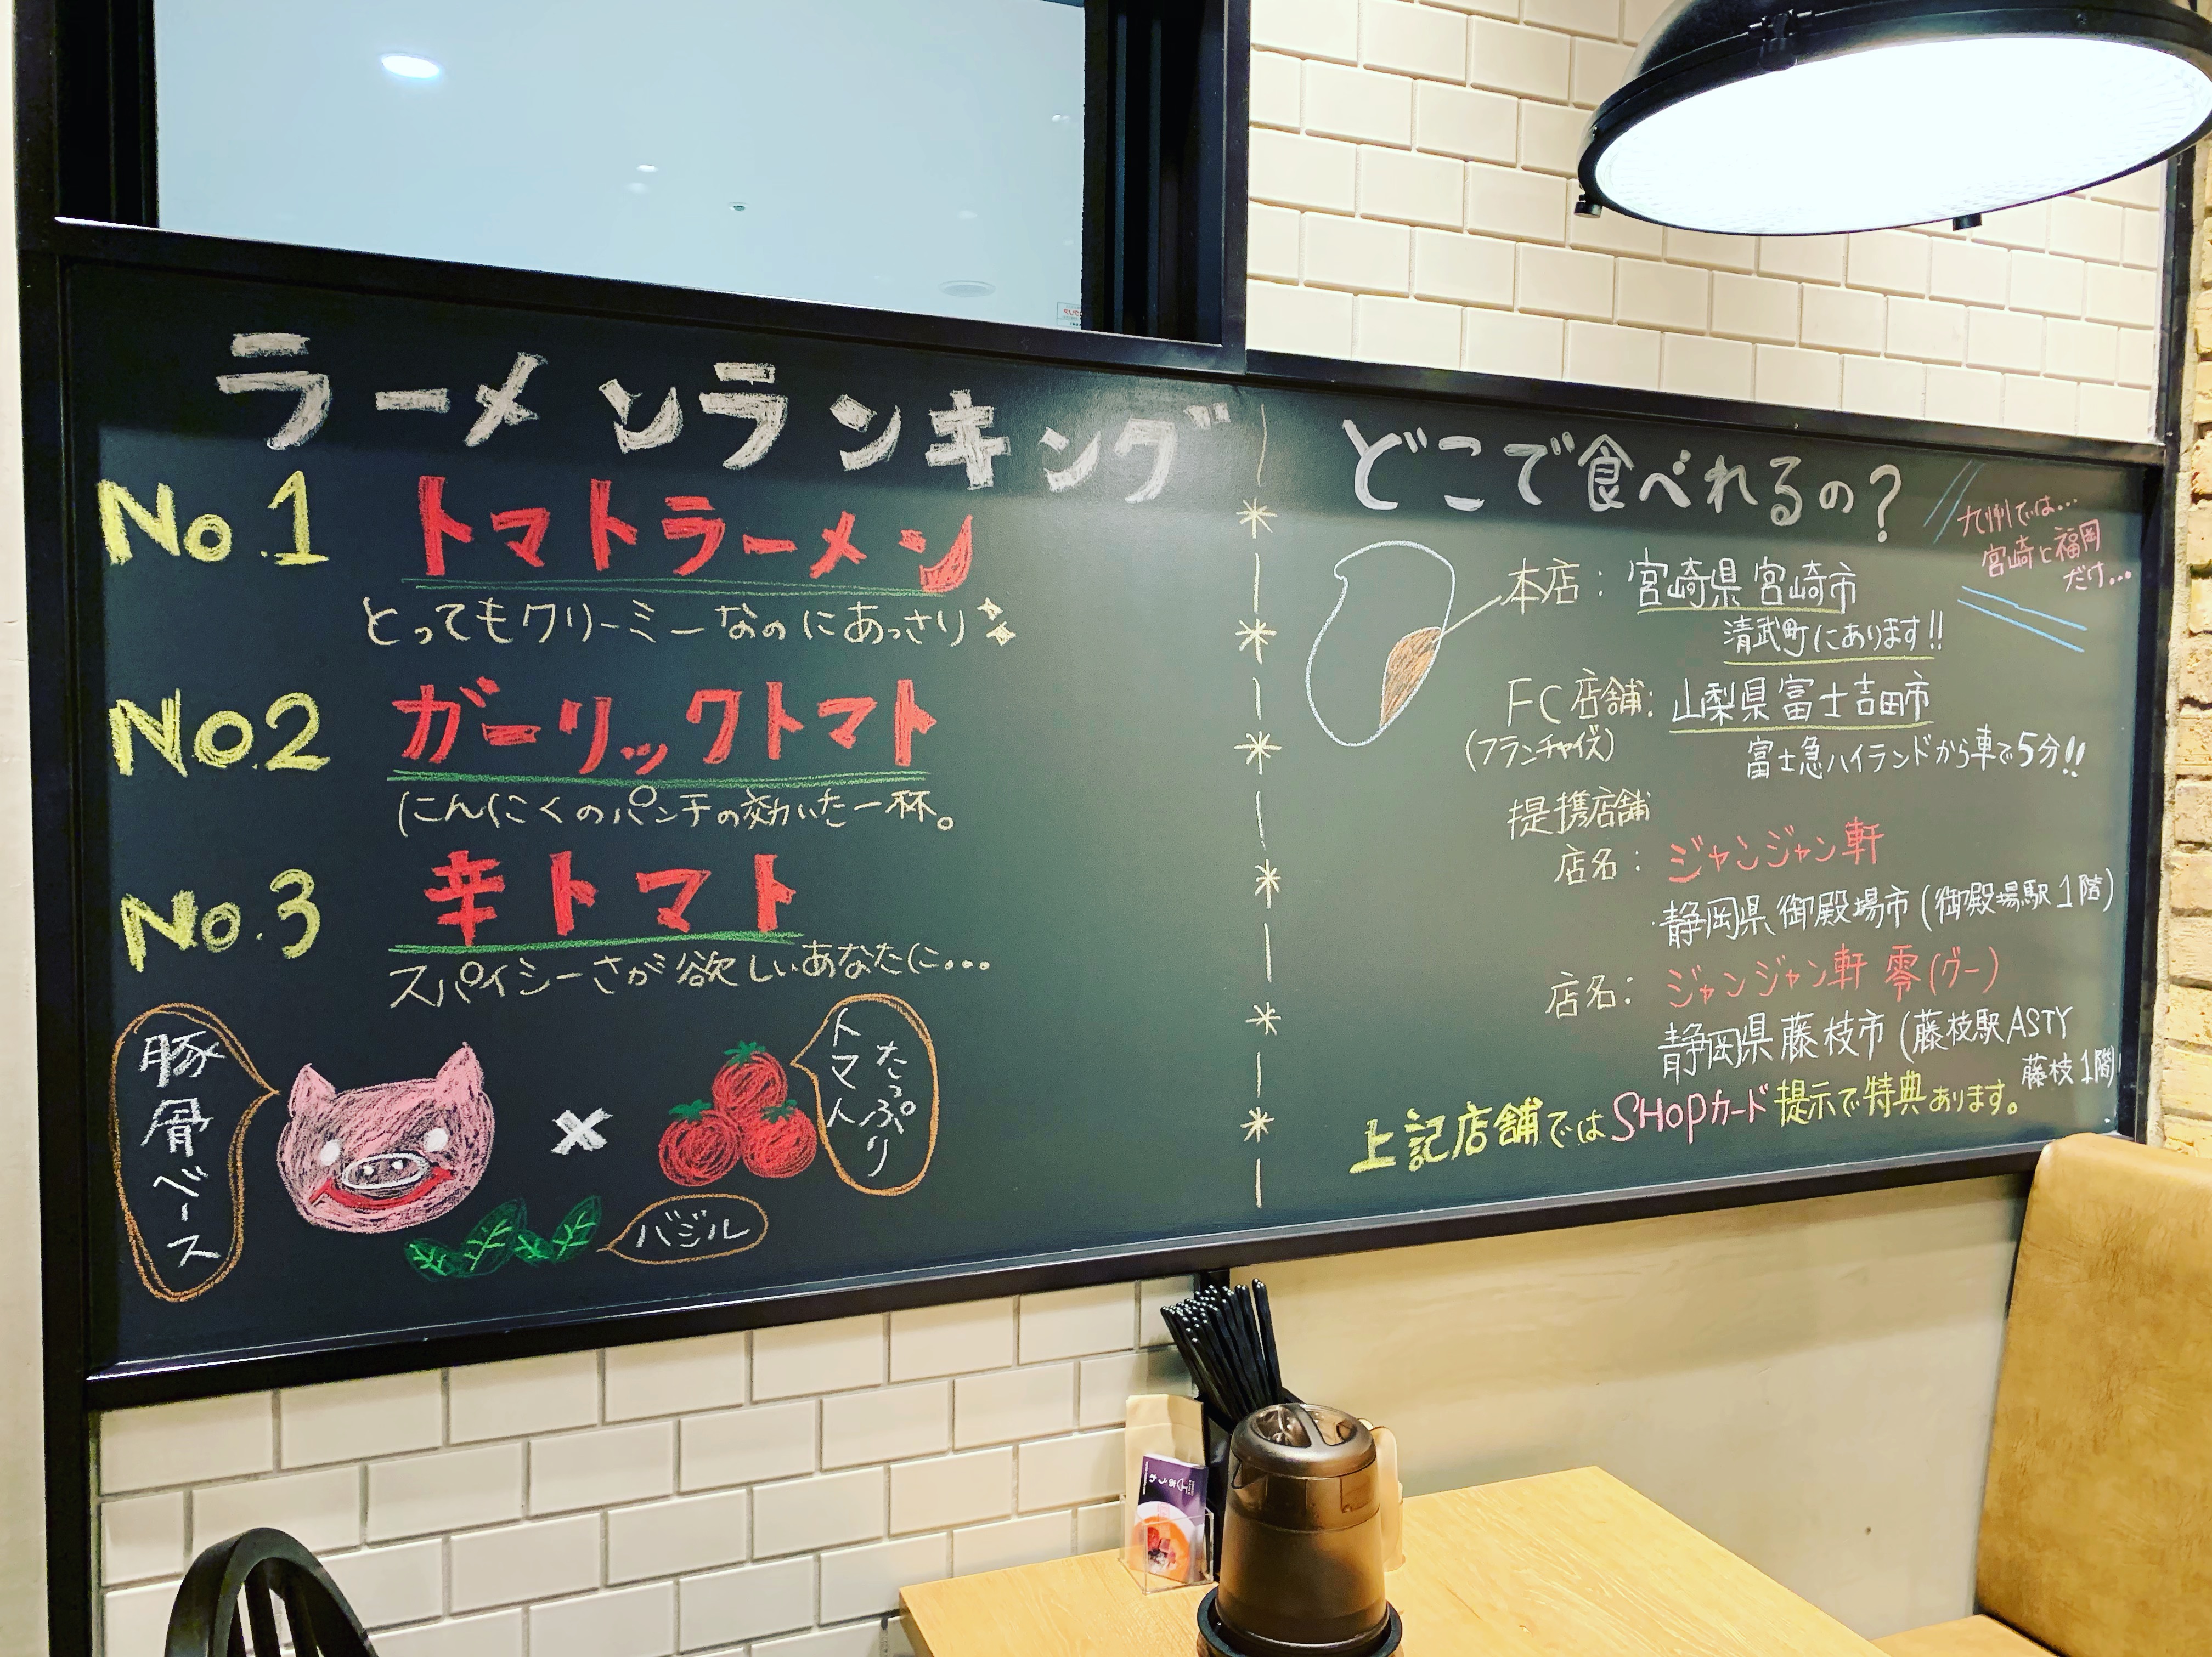 ラーメンランキング
No.1 トマトラーメン
とってもクリーミーなのにあっさり
No.2 ガーリックトマト
にんにくのパンチの効いた一杯。
No.3 辛トマト
スパイシーさが欲しいあなたに…
豚骨ベース
×
たっぷり
トマト
バジル
どこで食べれるの?
九州では…
宮崎と福岡
だけ…
本店: 宮崎県 宮崎市
清武町にあります!!
FC店舗: 山梨県富士吉田市
(フランチャイズ)
富士急ハイランドから車で5分!!
提携店舗
店名: ジャンジャン軒
静岡県御殿場市(御殿場駅1階)
店名: ジャンジャン軒 零(グー)
静岡県藤枝市(藤枝駅ASTY
藤枝1階)
上記店舗ではSHOPカード提示で特典あります。